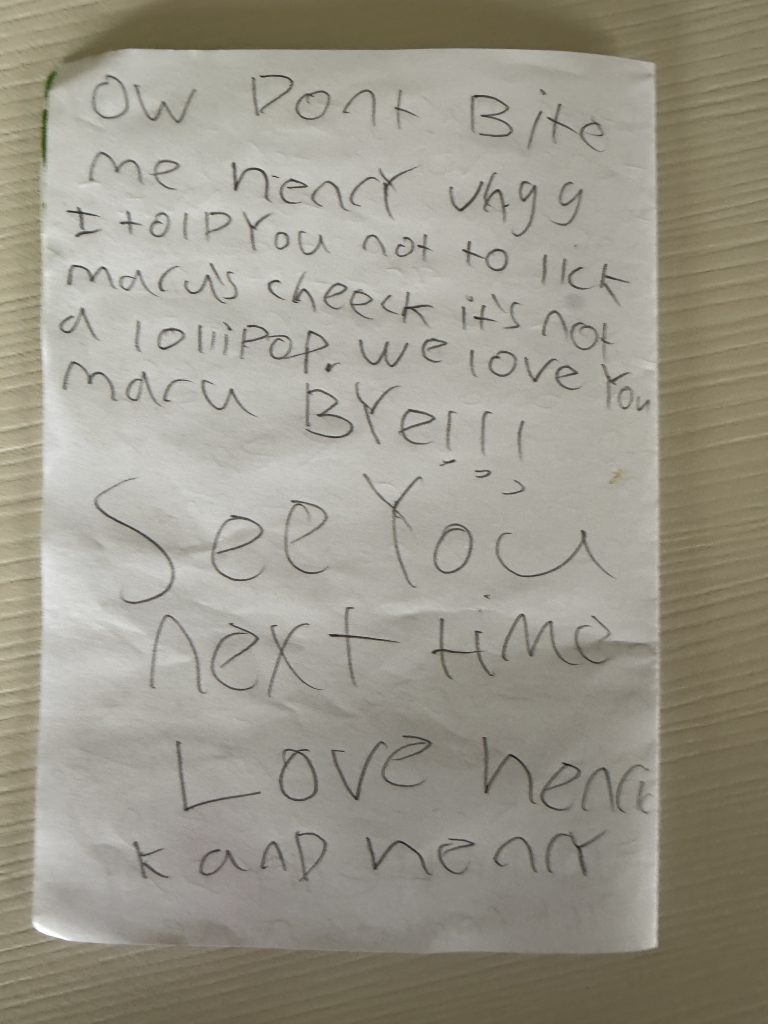 OW Dont Bite
me henry uhgg
I told You not to lick
maru's cheeck it's not
a lollipop. we love You
maru BYe!!!
See You
next time
Love henri
k and henry